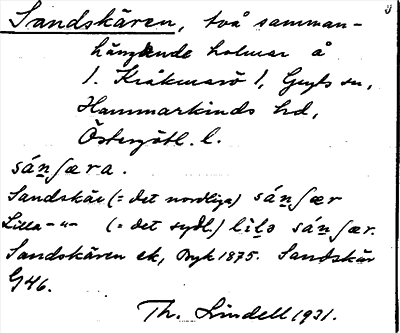 Sandskären, två samman-
hängande holmar å
1. Kråkmarö 1, Gryts sn,
Hammarkinds hd,
Östergötl. l.
sá́nʃæra.
Sandskär (= det nordliga) sánʃær
Lilla -"- (= det sydl.) lilə sánʃær.
Sandskären ek, Bryk 1875. Sandskär
G46.
Th. Lindell 1931.